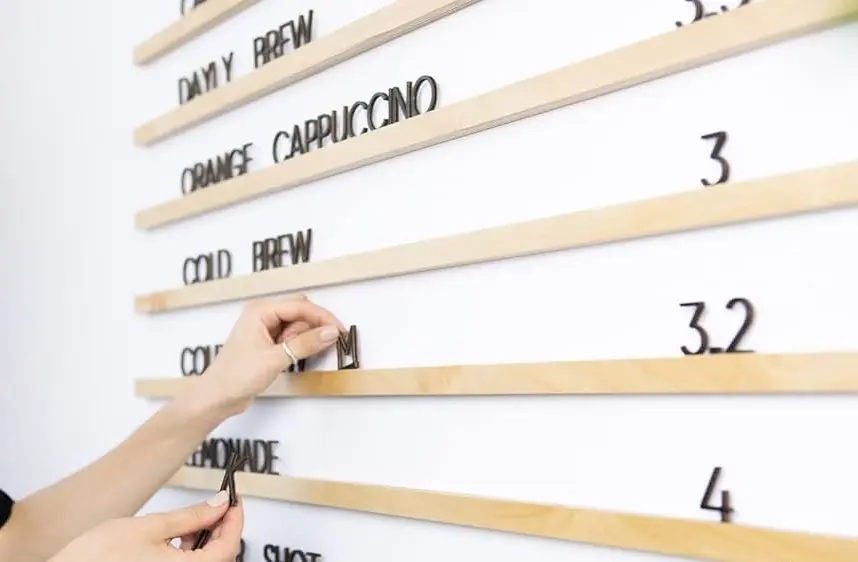 DAYLY BREW
ORANGE CAPPUCCINO
COLD BREW 3
M 3.2
LEMONADE 4
SHOT